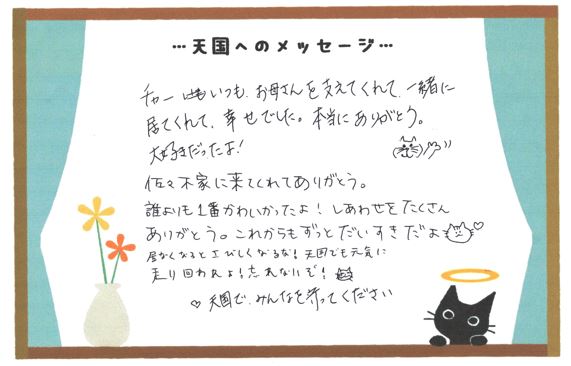 …天国へのメッセージ…
チャーいつも、お母さんを支えてくれて、一緒に
居てくれて、幸せでした。本当にありがとう。
大好きだったよ!
佐々木家に来てくれてありがとう。
誰よりも1番かわいかったよ!しあわせをたくさん
ありがとう。これからもずっとだいすきだよ♡
居なくなるとさびしくなるな!天国でも元気に
走り回れよ!忘れないぞ!
♡天国で、みんなを守ってください